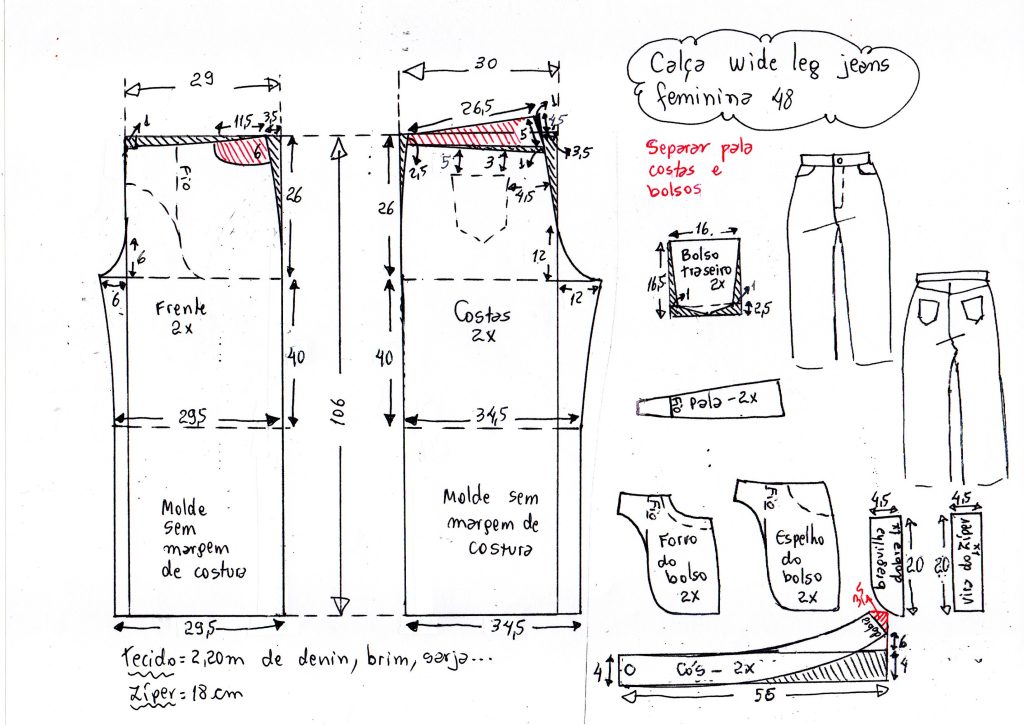 Calça wide leg jeans
feminina 48
Separar pala
costas e
bolsos
29
11,5
3,5
1
6
Fio
26
6
6
Frente
2x
40
29,5
Molde
sem
margem
de costura
29,5
106
30
26,5
1
4,5
5
3,5
2,5
5
3
1
4,5
26
12
12
Costas
2x
40
34,5
Molde sem
margem de
costura
34,5
16
16,5
Bolso
traseiro
2x
1
1
2,5
Fio
pala - 2x
Fio
Forro
do
bolso
2x
Fio
Espelho
do
bolso
2x
4,5
braguilha
dobra x1
20
4,5
20
vivo do zíper
x1
dobra
6
4
4
Cós - 2x
56
tecido = 2,20m de denin, brim, sarja...
Zíper = 18 cm